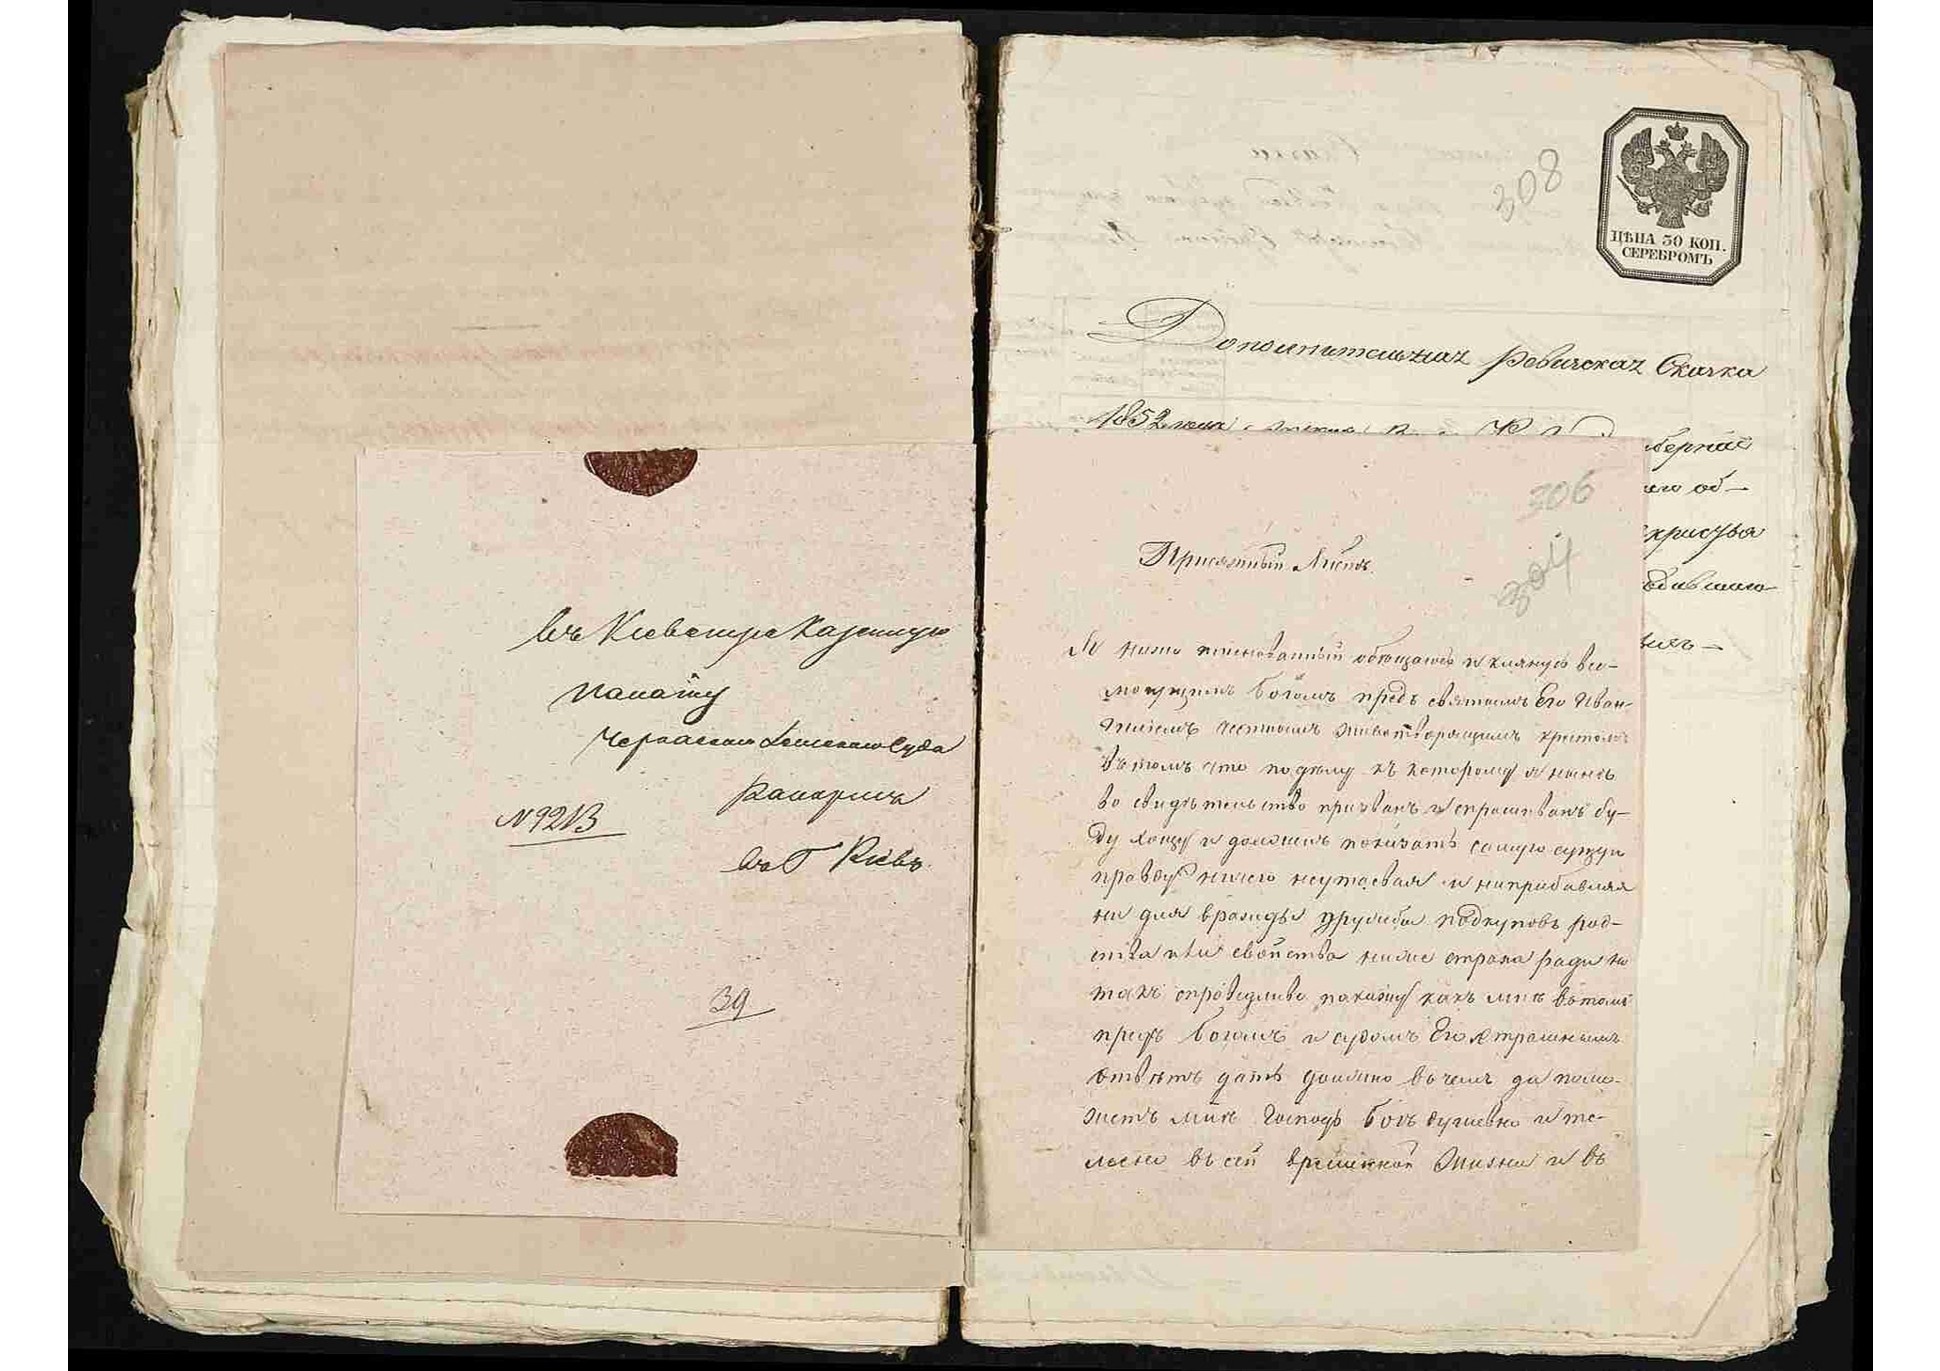 въ Киевскую Казенную
Палату
Черкаского Земского Суда
Рапортъ
№ 9213
въ Г Киевъ
39
308
ЦѢНА 30 КОП.
СЕРЕБРОМЪ
Дополнительная Ревиская Скаска
1852 года
306
304
Присяжный Листъ
Я ниже поименованный обѣщаюсь и клянусь все-
могущимъ богомъ предъ святымъ Его Еван-
гелiемъ и животворящимъ крестомъ
въ томъ что по дѣлу къ которому я нынѣ
во свидѣтельство призванъ и спрашиванъ бу-
ду хощу и долженъ показать самую сущую
правду ничего неутаевая и неприбавляя
ни для вражды дружбы подкуповъ род-
ства или свойства ниже страха ради но
такъ справедливо покажу какъ мнѣ въ томъ
предъ богомъ и судомъ Его страшнымъ
отвѣтъ дать должно въ чемъ да помо-
жетъ мнѣ Господь богъ душевно и те-
лесно въ сей временной жизни и въ